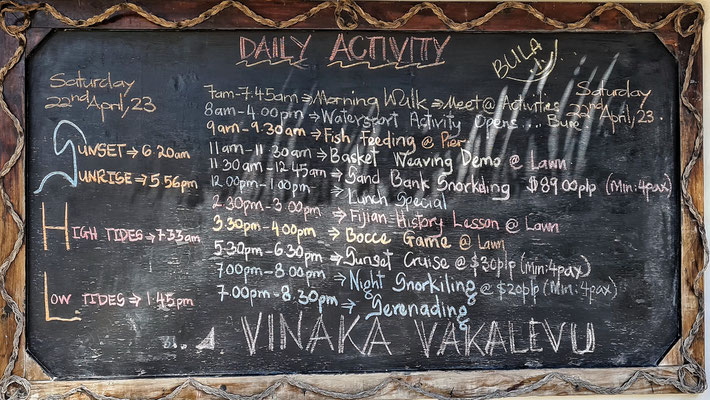 DAILY ACTIVITY
BULA
Saturday
22nd April, 23
SUNSET → 6.20am
SUNRISE → 5.56pm
HIGH TIDES → 7.33am
LOW TIDES → 1.45pm
7am-7:45am → Morning Walk → Meet @ Activities
8am-4.00pm → Watersport Activity Opens.... Bure
9am-9.30am → Fish Feeding @ Pier
11am-11:30am → Basket Weaving Demo @ Lawn
11.30am-12.45am → Sand Bank Snorkding $89.00plp (Min:4pax)
12.00pm-1.00pm → Lunch Special
2.30pm-3.00pm → Fijian History Lesson @ Lawn
3.30pm-4.00pm → Bocce Game @ Lawn
5.30pm-6.30pm → Sunset Cruise @ $30plp (min:4pax)
7.00pm-8.00pm → Night Snorkiling @ $20plp (Min:4pax)
7.00pm-8.30pm → Serenading
Saturday
22nd April, 23
VINAKA VAKALEVU